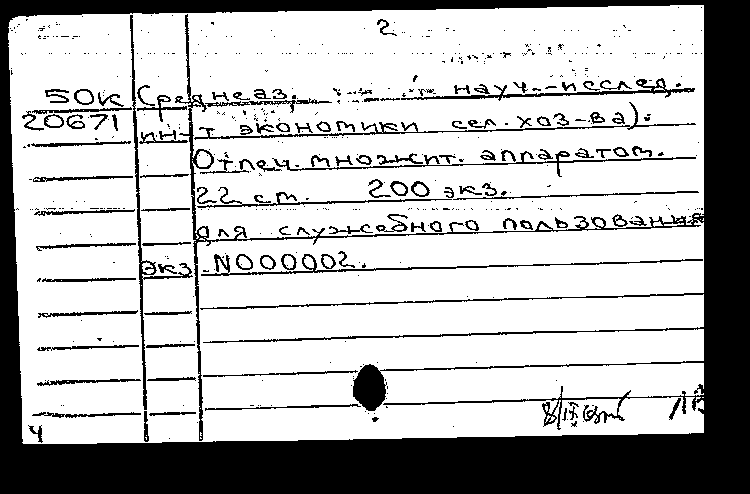 2
50К Среднеаз. науч.-исслед.
20671 ин-т экономики сел. хоз-ва).
Отпеч. множит. аппаратом.
22 см. 200 экз.
для служебного пользования
экз N000002.
4